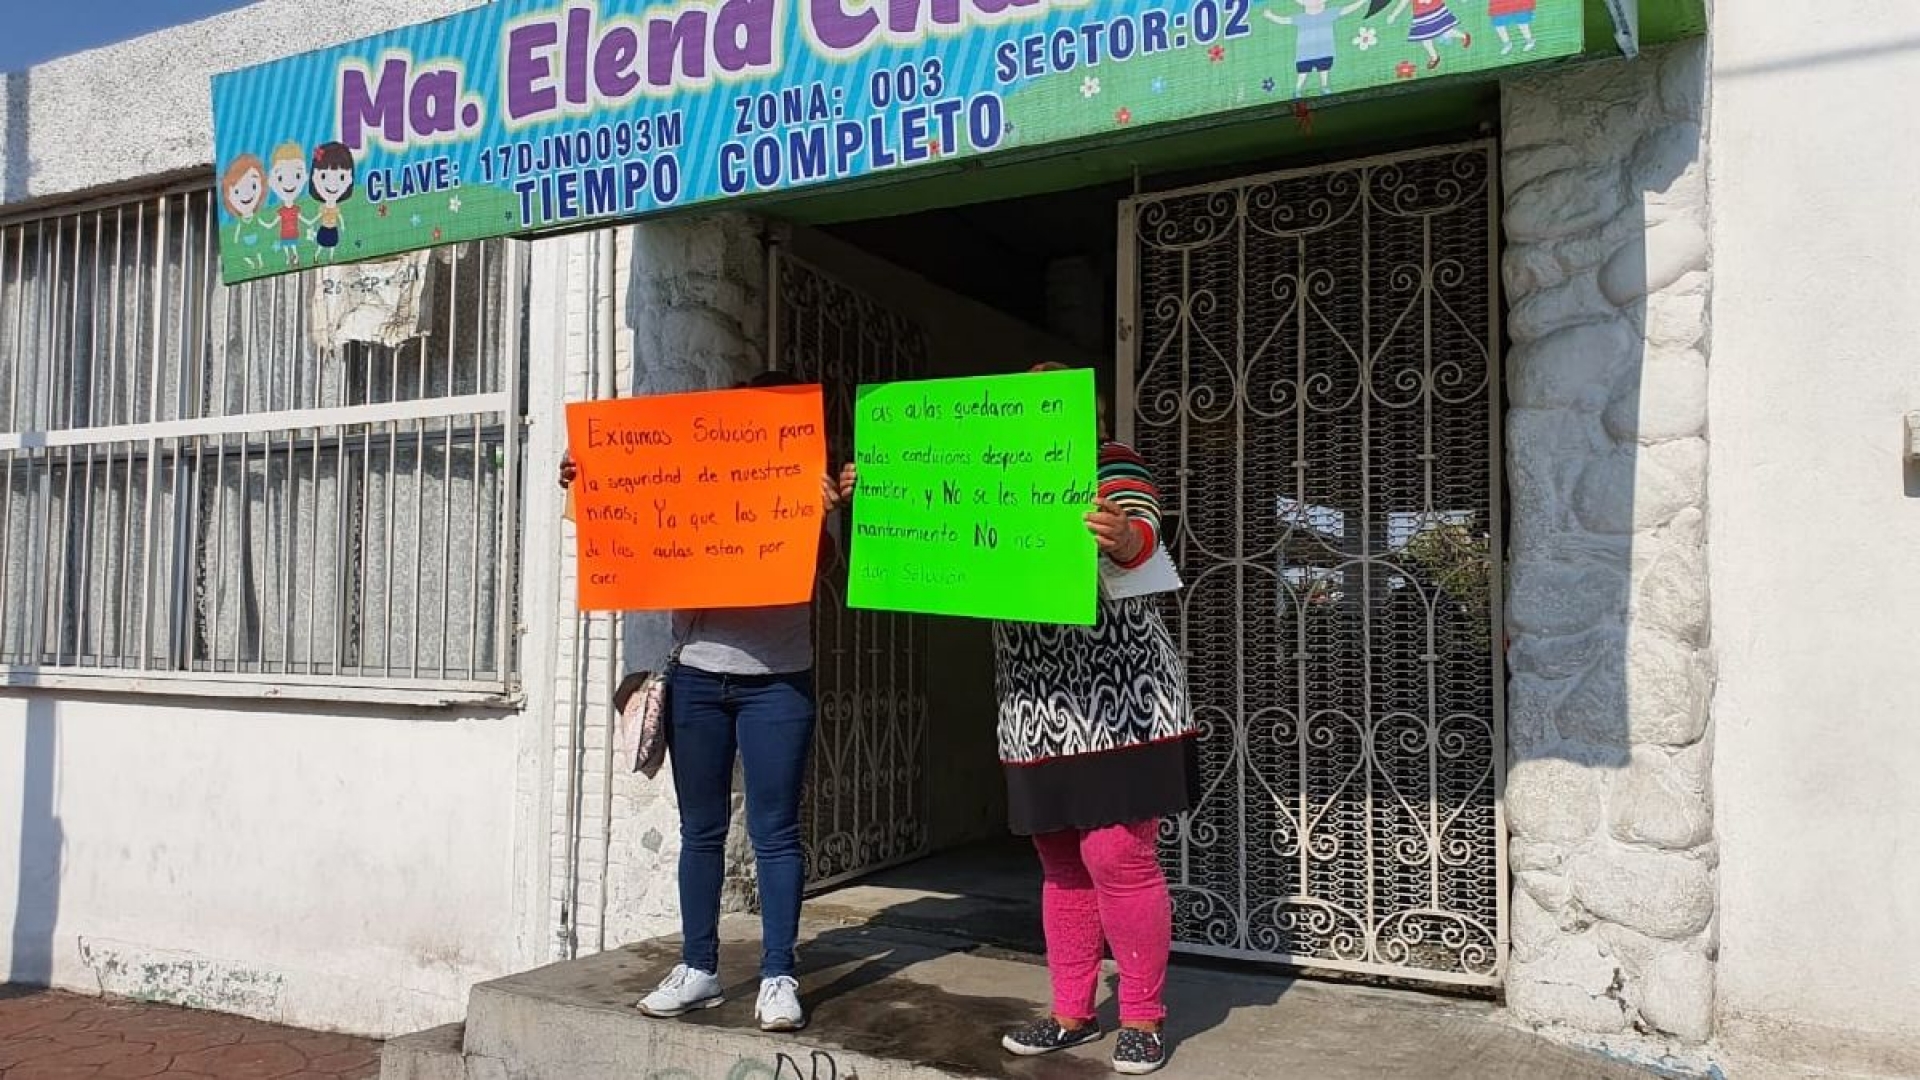 Ma. Elena
CLAVE: 17DJN0093M ZONA: 003 SECTOR:02
TIEMPO COMPLETO
Exigimos Solución para
la seguridad de nuestros
niños; Ya que los techos
de las aulas estan por
caer.
as aulas quedaron en
malas condiciones despues del
temblor, y No se les ha dado
mantenimiento NO nos
dan Solución